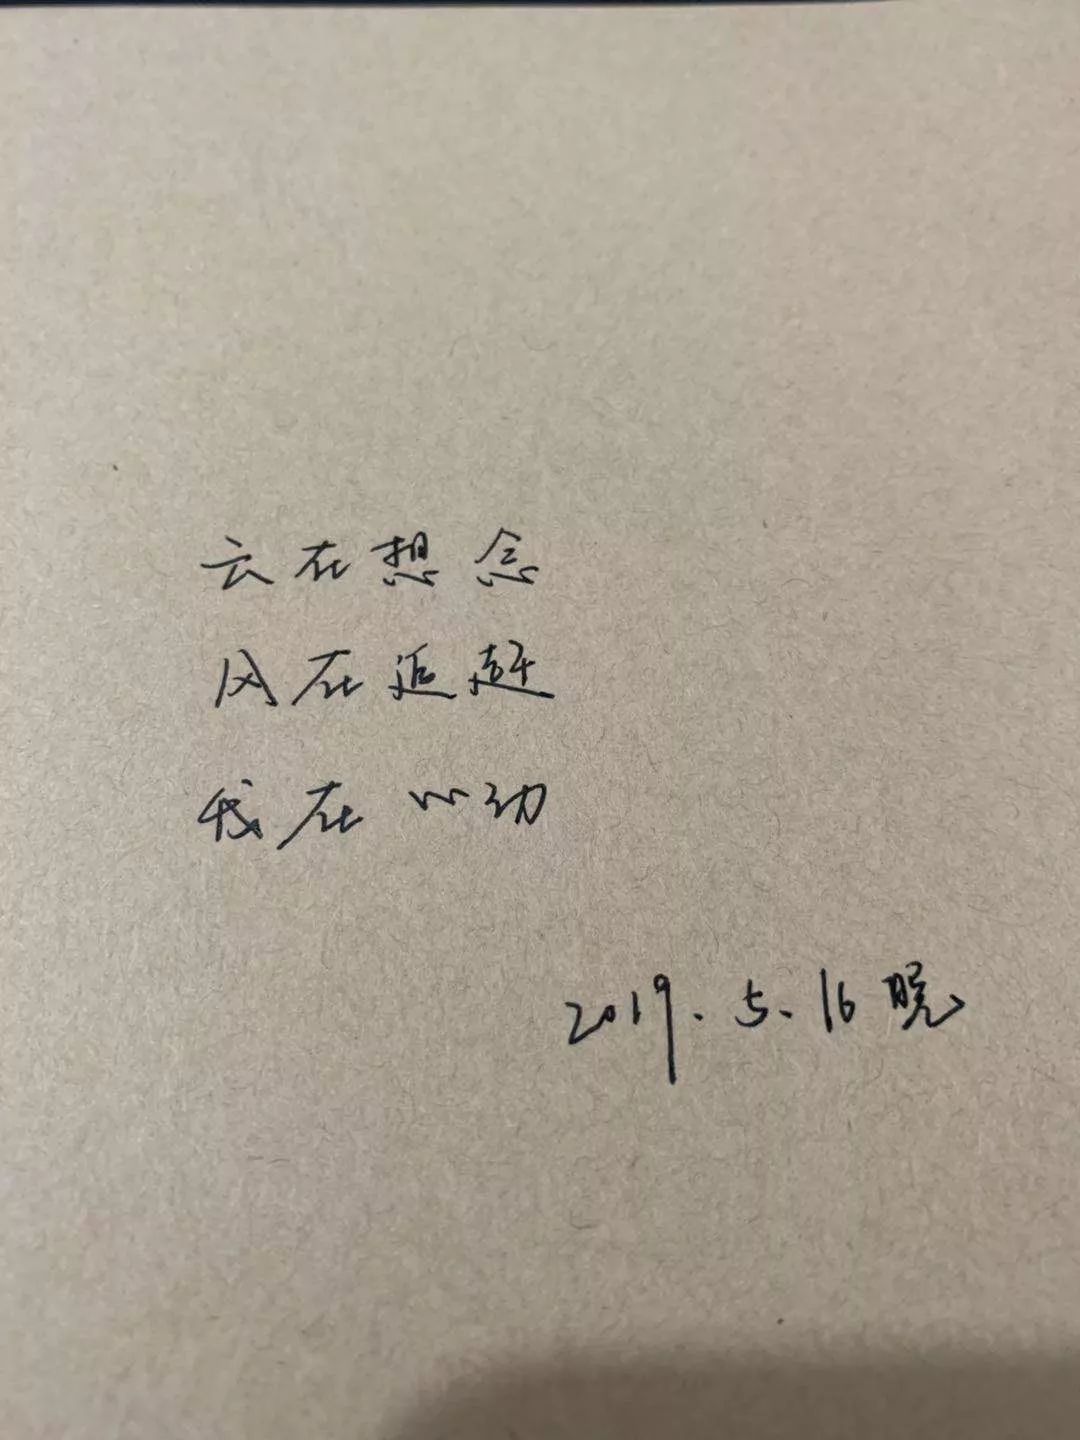 云在想念
风在追赶
我在心动
2019.5.16晚